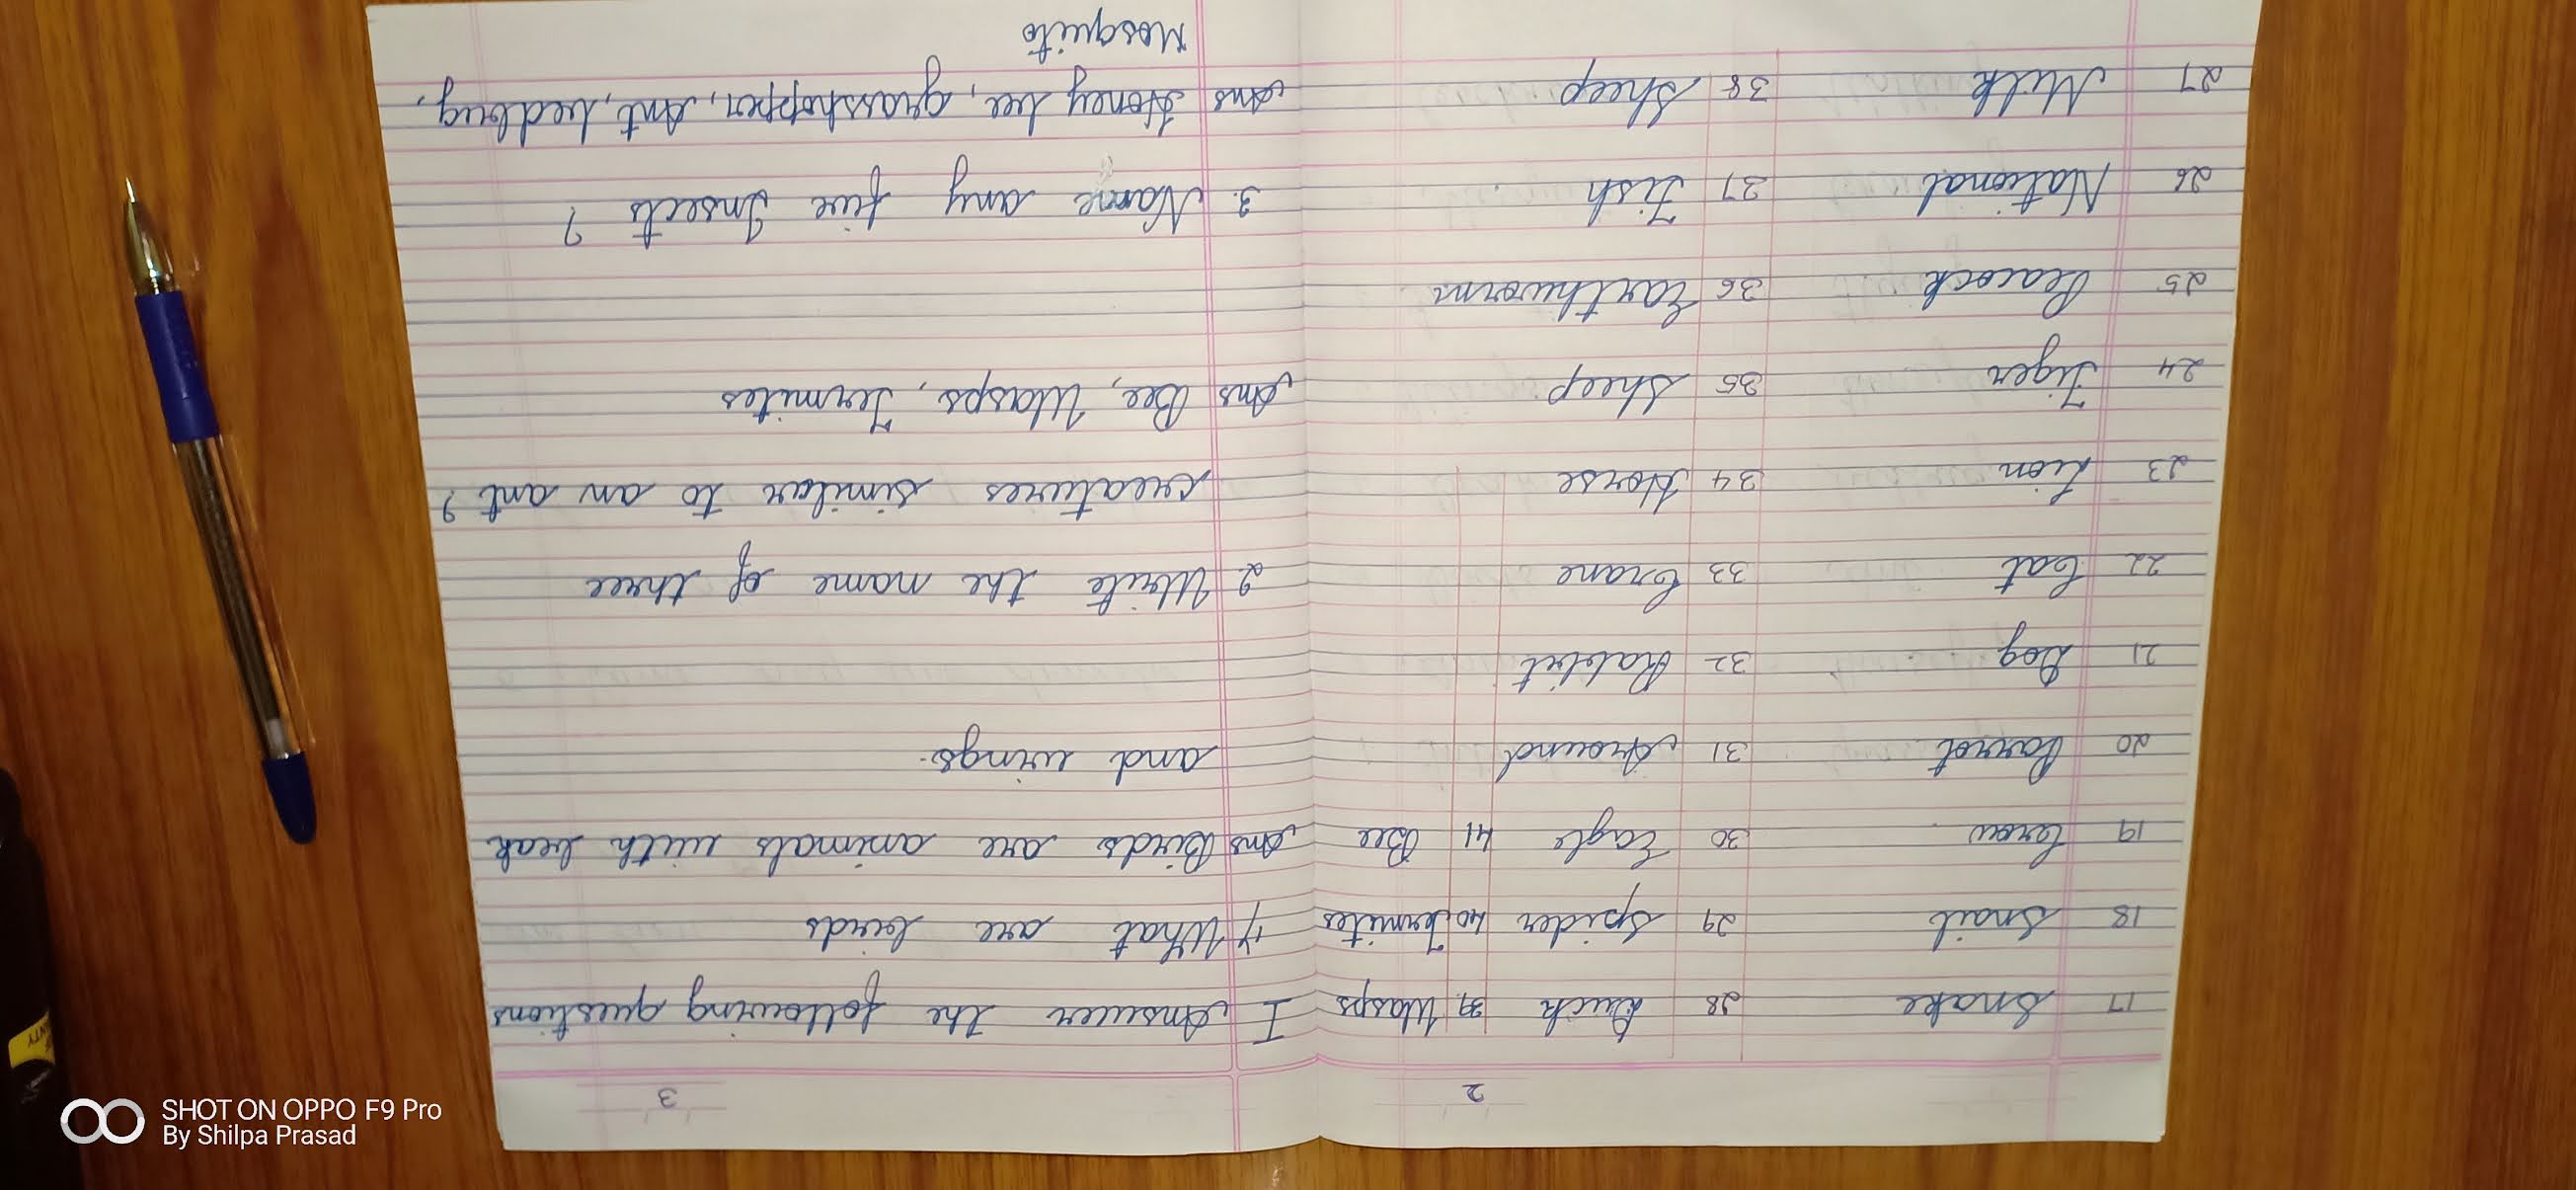 2
17 Snake 28 Duck 39. Wasps
18 Snail 29 Spider 40 Termites
19 Crow 30 Eagle 41 Bee
20 Parrot 31 Around
21 Dog 32 Rabbit
22 Cat 33 Crane
23 Lion 34 Horse
24 Tiger 35 Sheep
25 Peacock 36 Earthworm
26 National 37 Fish
27 Milk 38 Sheep
3
I Answer the following questions
1/ What are birds
Ans Birds are animals with beak
and wings.
2 Write the name of three
creatures similar to an ant?
Ans Bee, Wasps, Termites
3. Name any five Insects ?
Ans Honey bee, grasshopper, Ant, bedbug,
Mosquito
SHOT ON OPPO F9 Pro
By Shilpa Prasad